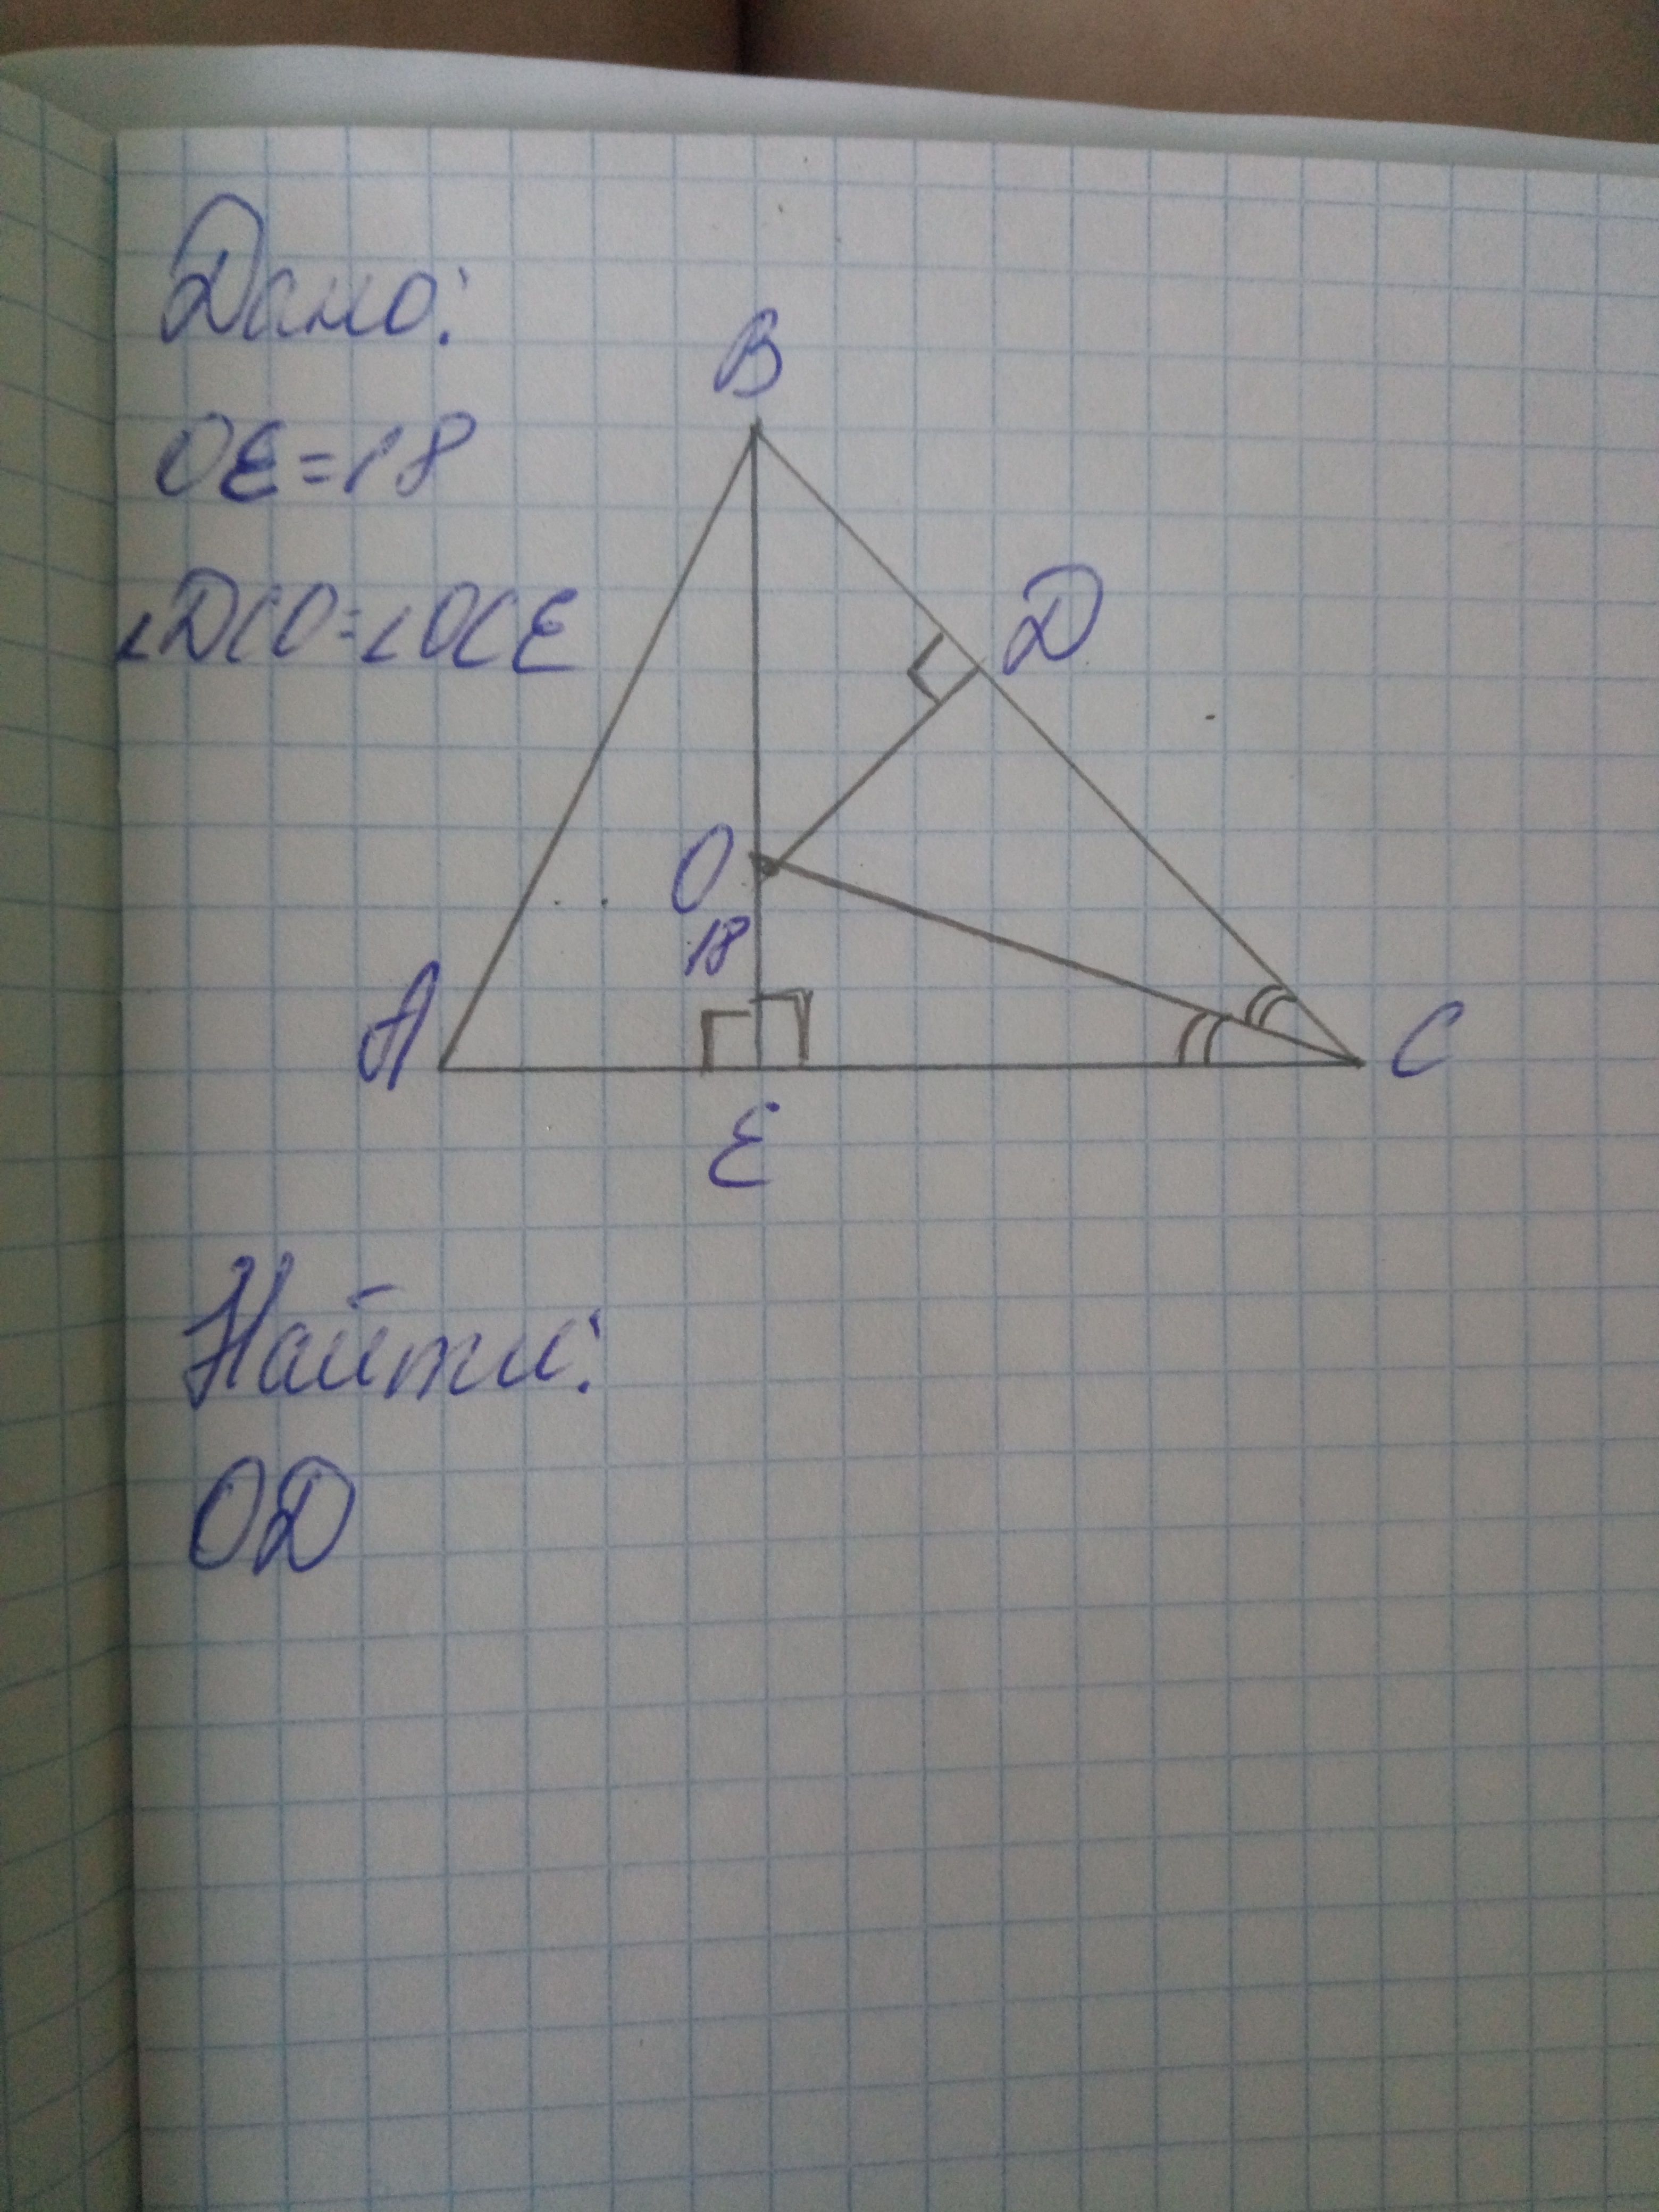 Дано:
OE=18
∠DCO=∠OCE
B
D
O
18
A
C
E
Найти:
OD